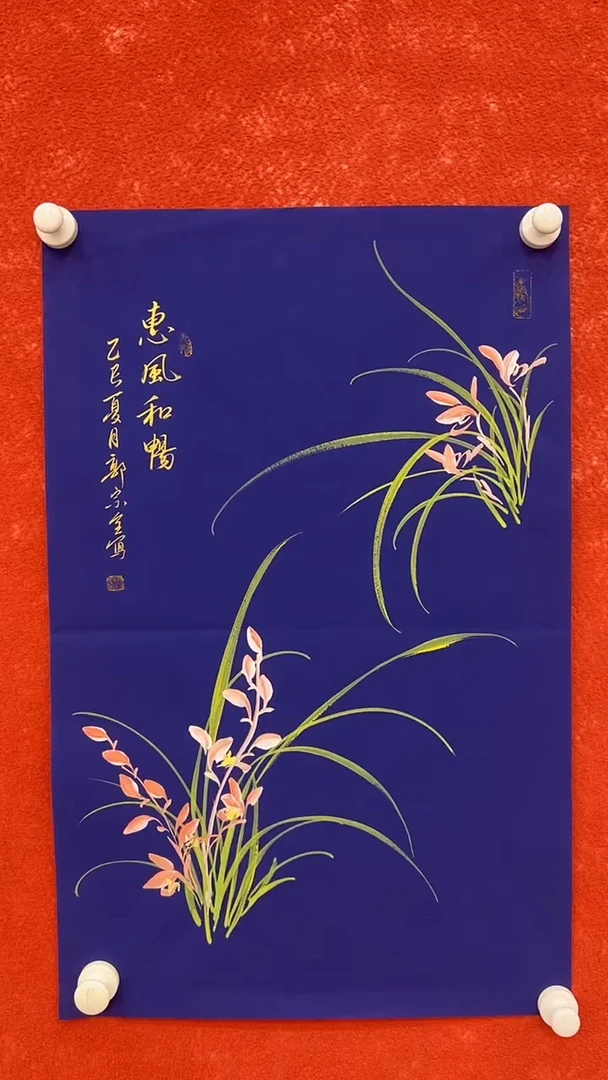 惠風和暢
乙巳夏月郭宗全寫